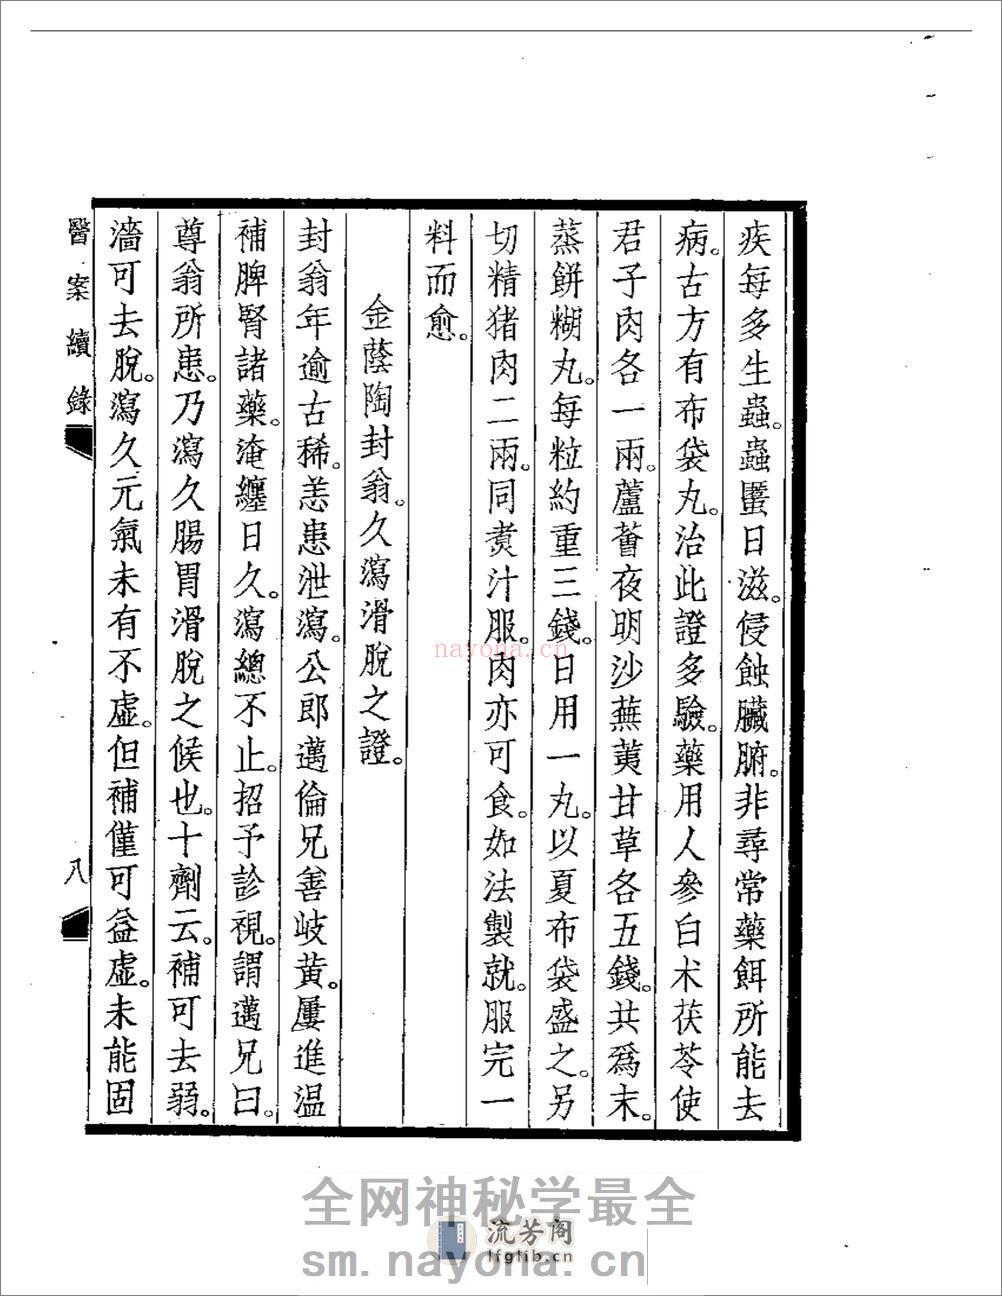 疾每多生蟲。蟲蜃日滋。侵蝕臟腑。非尋常藥餌所能去
病。古方有布袋丸。治此證多驗。藥用人參白术茯苓使
君子肉各一兩。蘆薈夜明沙蕪荑甘草各五錢。共爲末。
蒸餅糊丸。每粒約重三錢。日用一丸。以夏布袋盛之。另
切精猪肉二兩。同煑汁服。肉亦可食。如法製就。服完一
料而愈。
金蔭陶封翁。久瀉滑脫之證。
封翁年逾古稀。恙患泄瀉。公郎邁倫兄善岐黃。屢進温
補脾腎諸藥。淹纏日久。瀉總不止。招予診視。謂邁兄曰。
尊翁所患。乃瀉久腸胃滑脫之候也。十劑云。補可去弱。
濇可去脫。瀉久元氣未有不虛。但補僅可益虛。未能固
醫案續錄
八
nayona.cn
全网神秘学最全
流芳阁
lfglib.cn
sm.nayona.cn